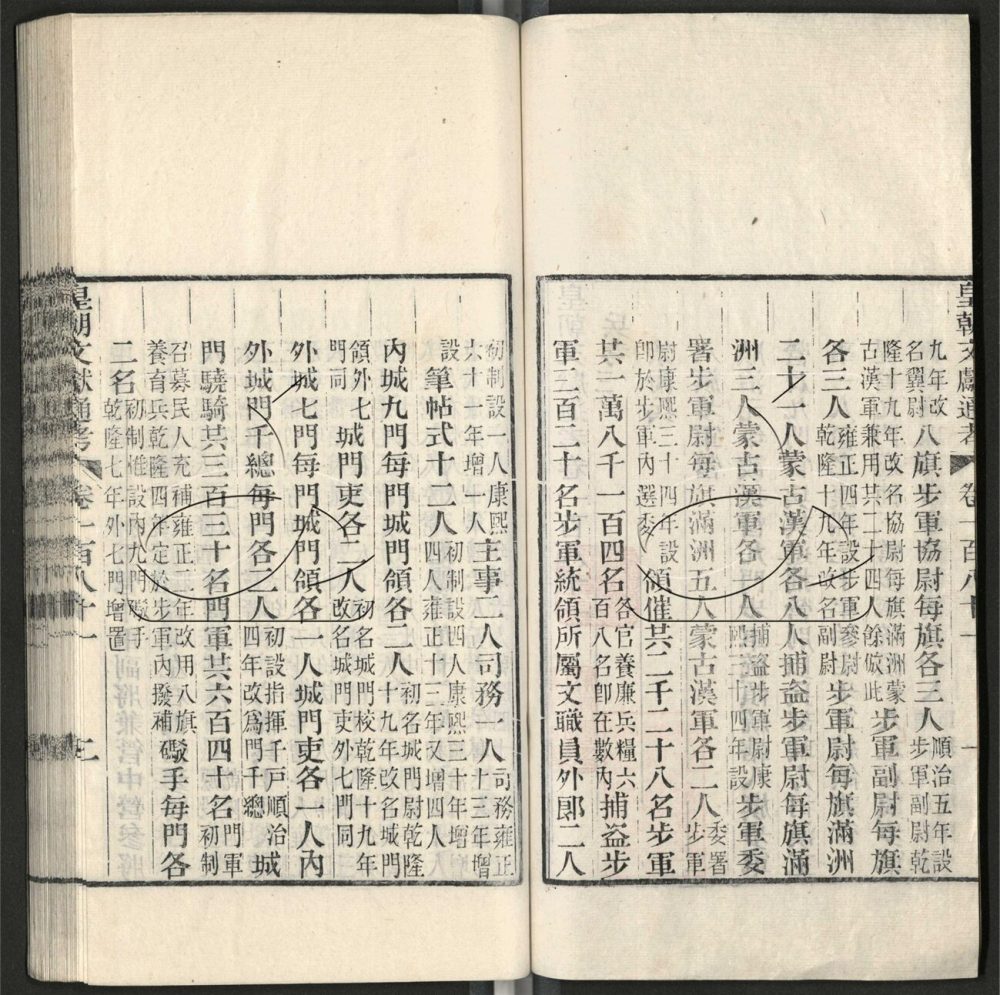 皇朝文獻通考 卷一百八十一
九年改名翼尉八旗步軍協尉每旗各三人順治五年設步軍副尉乾
隆十九年改名協尉每旗滿洲蒙古漢軍兼用共二十四人餘倣此步軍副尉每旗
各三人雍正四年設步軍參尉乾隆十九年改名副尉步軍尉每旗滿洲
二十一人蒙古漢軍各八人捕盜步軍尉每旗滿
洲三人蒙古漢軍各一人捕盜步軍尉康熙三十四年設步軍委
署步軍尉每旗滿洲五人蒙古漢軍各二人委署步軍
尉康熙三十四年設卽於步軍內選委領催共二千二十八名步軍
共一萬八千一百四名各官養廉兵糧六百八名卽在數內捕盜步
軍三百二十名步軍統領所屬文職員外郎二人
初制設一人康熙六十年增一人主事二人司務一人司務雍正十三年增
設筆帖式十二人初制設四人康熙三十年增四人雍正十三年又增四人
內城九門每門城門領各二人初名城門尉乾隆十九年改名城門
領外七門同城門吏各二人初名城門校乾隆十九年改名城門吏外七門同
外城七門每門城門領各一人城門吏各一人內
外城門千總每門各二人初設指揮千戶順治四年改爲門千總城
門驍騎共三百三十名門軍共六百四十名門軍初制
召募民人充補雍正二年改用八旗養育兵乾隆四年定於步軍內撥補礮手每門各
二名初制惟設內九門礮手乾隆七年外七門增置
皇朝文獻通考 卷一百八十一 七